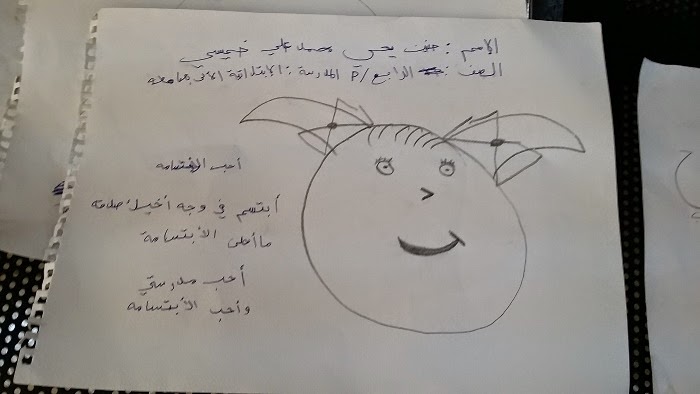 الاسم : يحيى محمد علي خميسي
الصف : الرابع/ المدرسة : الابتدائية
أحب الإبتسامه
أبتسم في وجه أخيك صدقه
ما أحلى الأبتسامة
أحب مدرستي
وأحب الأبتسامه